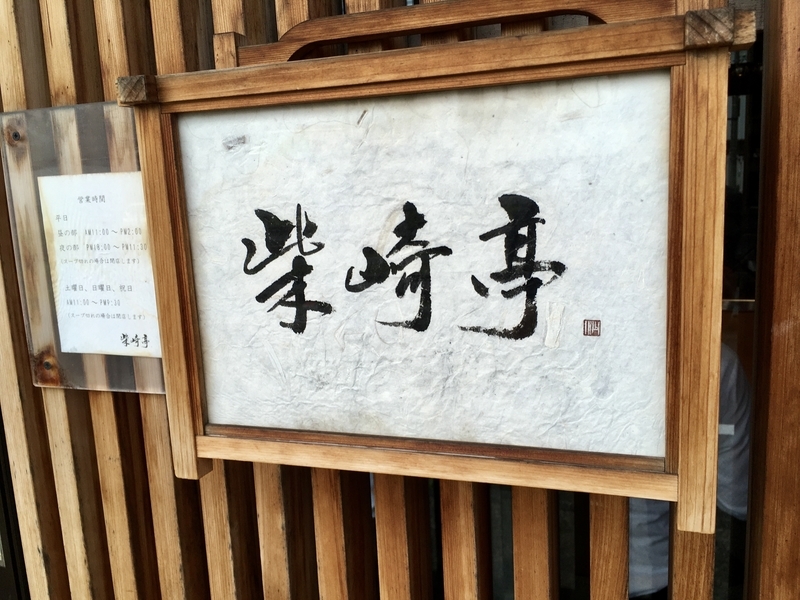 営業時間
平日
昼の部 AM11:00～PM2:00
夜の部 PM6:00～PM11:30
(スープ切れの場合は閉店します)
土曜日、日曜日、祝日
AM11:00～PM9:30
(スープ切れの場合は閉店します)
柴崎亭
柴崎亭